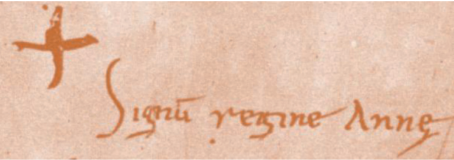 Signū regine Annę